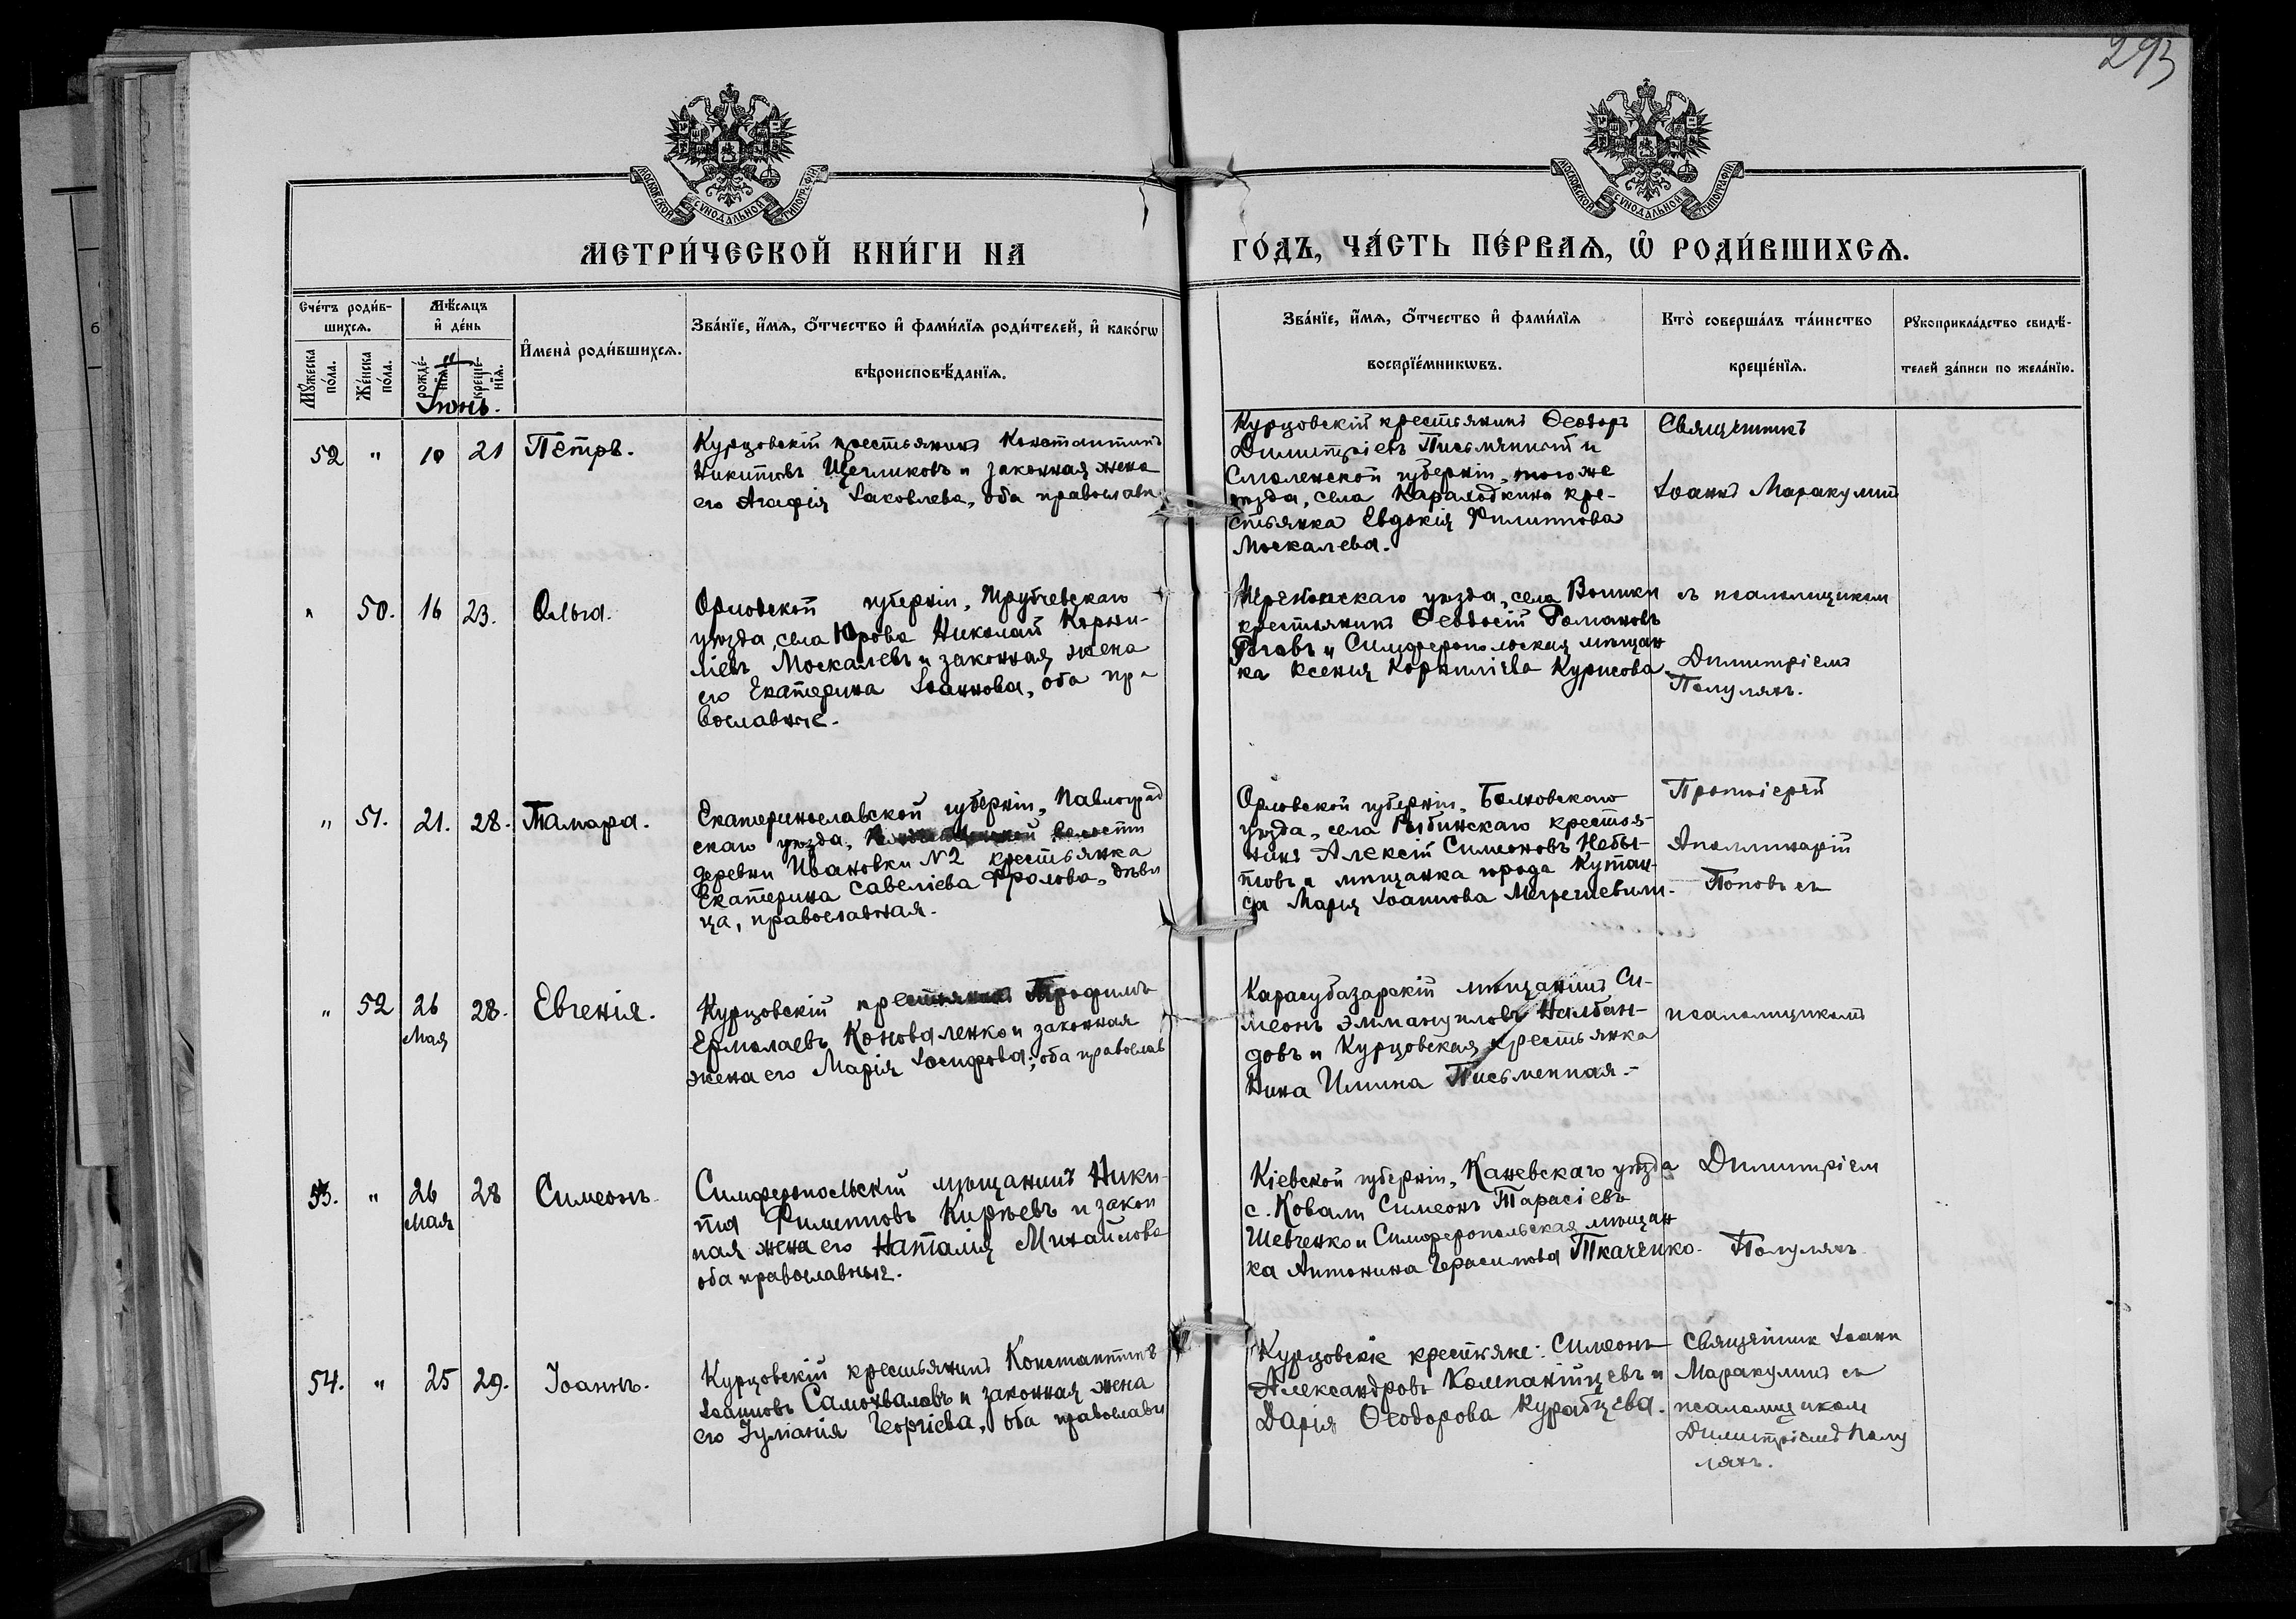 293
МОСКОВСКОЙ СѴНОДАЛЬНОЙ ТИПОГРАФІИ
МОСКОВСКОЙ СѴНОДАЛЬНОЙ ТИПОГРАФІИ
МЕТРИ́ЧЕСКОЙ КНИ́ГИ НА
ГО́ДЪ, ЧА́СТЬ ПЕ́РВАѦ, Ѽ РОДИ́ВШИХСѦ.
Сче́тъ роди́в-
шихсѧ.
Мꙋ́жеска
по́ла.
Же́нска
по́ла.
Мѣ́сѧцъ
и҆ де́нь
рожде́-
нїѧ.
креще́-
нїѧ.
Іюнь.
И҆мена̀ роди́вшихсѧ.
Зва́нїе, и҆́мѧ, ѻ҆́тчество и҆ фами́лїѧ роди́телей, и҆ како́гѡ
вѣроисповѣ́данїѧ.
Зва́нїе, и҆́мѧ, ѻ҆́тчество и҆ фами́лїѧ
воспрїе́мникѡвъ.
Кто̀ соверша́лъ та́инство
креще́нїѧ.
Рꙋкоприкла́дство свидѣ́-
телей за́писи по жела́нїю.
52 " 10 21 Петръ.
Курцовскій крестьянинъ Константинъ
Никитовъ Щегликовъ и законная жена
его Агафія Іаковлева, оба православн
Курцовскій крестьянинъ Ѳеодоръ
Димитріевъ Письмянный и
Смоленской губерніи, того же
уѣзда, села кре-
стьянка Евдокія Филиппова
Москалева.
Священникъ
Іоаннъ Маракулинъ
" 50. 16 23. Ольга.
Орловской губерніи, Трубчевскаго
уѣзда, села Юрова Николай Корни-
ліевъ Москалевъ и законная жена
его Екатерина Іоаннова, оба пра
вославные.
уѣзда, села
крестьянинъ Ѳеодосій Романовъ
и Симферопольская мѣщан
ка Ксенія Корниліева Курисова
съ псаломщикомъ
Димитріемъ
Полулянъ.
" 51. 21. 28. Тамара.
Екатеринославской губерніи, Павлоград
скаго уѣзда, волости
деревни Ивановки №2 крестьянка
Екатерина Савеліева Фролова, дѣви
ца, православная.
Орловской губерніи, Болховскаго
уѣзда, села Рыбинскаго крестья-
нинъ Алексій Симеоновъ Небы-
товъ и мѣщанка города Кутаи-
са Марія Іоаннова
Протоіерей
Аполлинарій
Поповъ съ
" 52 26 мая 28. Евгенія.
Курцовскій крестьянинъ Трофимъ
Ермолаевъ Коноваленко и законная
жена его Марія Іосифова, оба православ
Карасубазарскій мѣщанинъ Си-
меонъ Эммануиловъ Налбан-
довъ и Курцовская крестьянка
Нина Илиина Письменная.-
псаломщикомъ
53. " 26 мая 28 Симеонъ.
Симферопольскій мѣщанинъ Ники-
та Филипповъ Кирѣевъ и закон
ная жена его Наталія Михайлова
оба православные.
Кіевской губерніи, Каневскаго уѣзда
с. Ковали Симеонъ Тарасіевъ
Шевченко и Симферопольская мѣщан
ка Антонина Герасимова Ткаченко.
Димитріем
Полулянъ.
54. " 25 29. Іоаннъ.
Курцовскій крестьянинъ Константинъ
Іоанновъ Самохваловъ и законная жена
его Іуліанія Георгіева, оба православн
Курцовскіе крестьяне: Симеонъ
Александровъ Компанійцевъ и
Дарія Ѳеодорова Курабцева.
Священник Іоанн
Маракулинъ съ
псаломщиком
Димитріемъ Полу
лянъ.